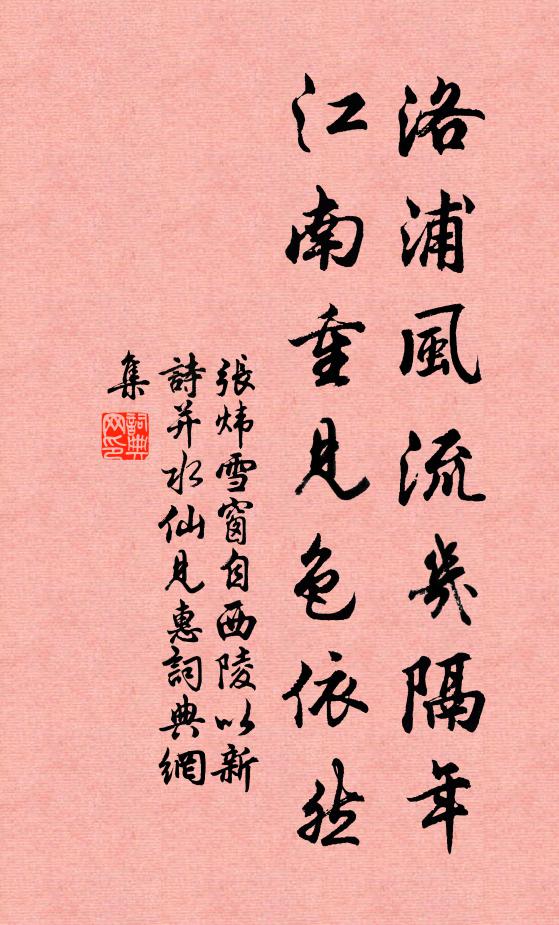 洛浦風流幾隔年
江南重見色依然
張煒雪窗自西陵以新
詩并水仙見惠詞典網
集
詞典
网印